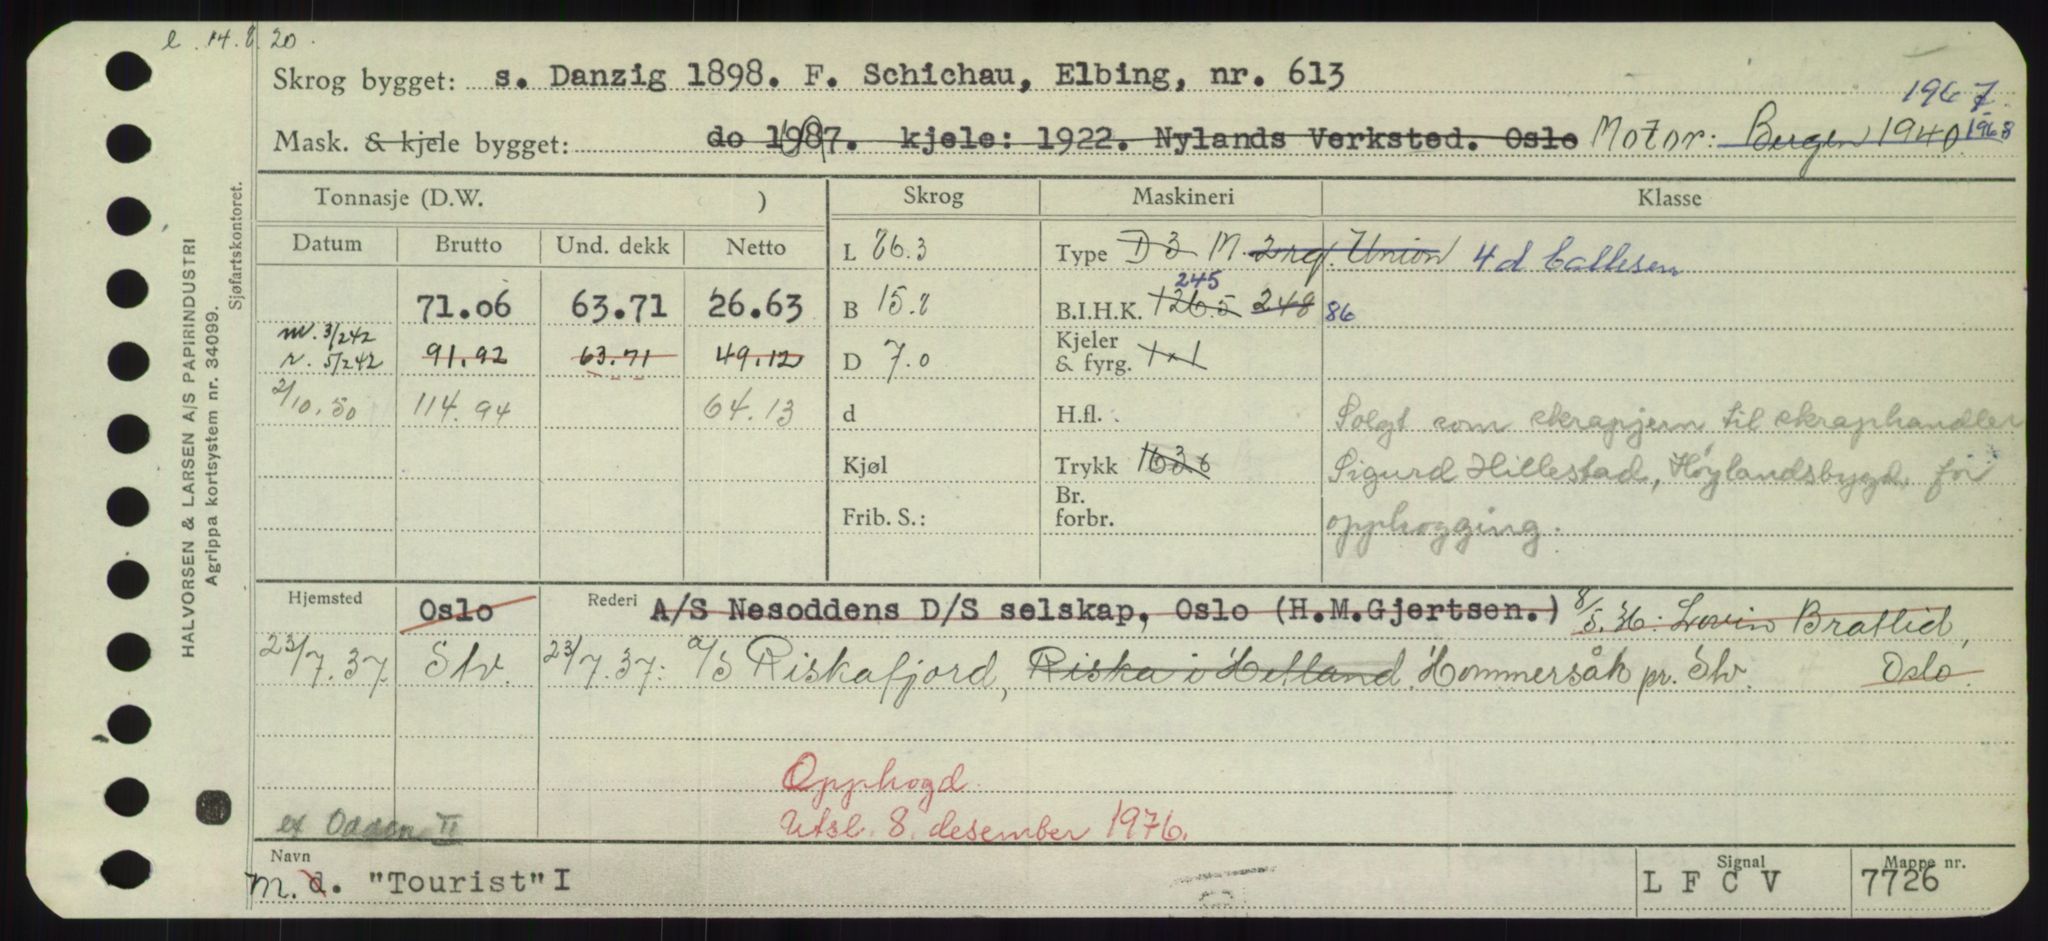 e. 14.8.20.
Skrog bygget: s. Danzig 1898. F. Schichau, Elbing, nr. 613
1967.
Mask. & kjele bygget: do 1907. kjele: 1922. Nylands Verksted. Oslo Motor: Bergen 1940. 1968
Tonnasje (D.W. ) Skrog Maskineri Klasse
Datum Brutto Und. dekk Netto L 86.3 Type D 3 M. 2 rq. Union 4 d Callesen
245
71.06 63.71 26.63 B 15.8 B.I.H.K. 126.5 248 86
m. 3/2 42
r. 5/2 42 91.92 63.71 49.12 D 7.0 Kjeler & fyrg. 1x1
2/10.50 114.94 64.13 d H.fl. Solgt som skrapjern til skraphandler
Kjøl Trykk 163.6 Sigurd Hillestad, Høylandsbygd, for
Frib. S.: Br. forbr. opphogging.
Hjemsted Oslo Rederi A/S Nesoddens D/S selskap, Oslo (H.M.Gjertsen.) 8/5.36: Lovin Bratlid,
23/7.37. Stv. 23/7.37: a/s Riskafjord, Riska i Hetland. Hommersåk pr. Stv. Oslo.
Opphogd.
ex Odden II Utsl. 8. desember 1976.
Navn Signal Mappe nr.
M. d. "Tourist" I L F C V 7726
HALVORSEN & LARSEN A/S PAPIRINDUSTRI
Agrippa kortsystem nr. 34099.
Sjøfartskontoret.